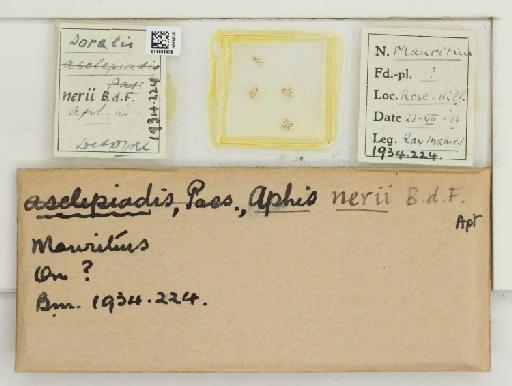 Doralis
asclepiadis
Pass
nerii B.d.F.
Apt.
1934.224
N. Mauritius
Fd.-pl. ?
Loc. Rose-Hill
Date 23-VII-34
Leg.
1934.224.
asclepiadis, Pass., Aphis nerii B.d.F.
Apt
Mauritius
On ?
B.m. 1934.224.